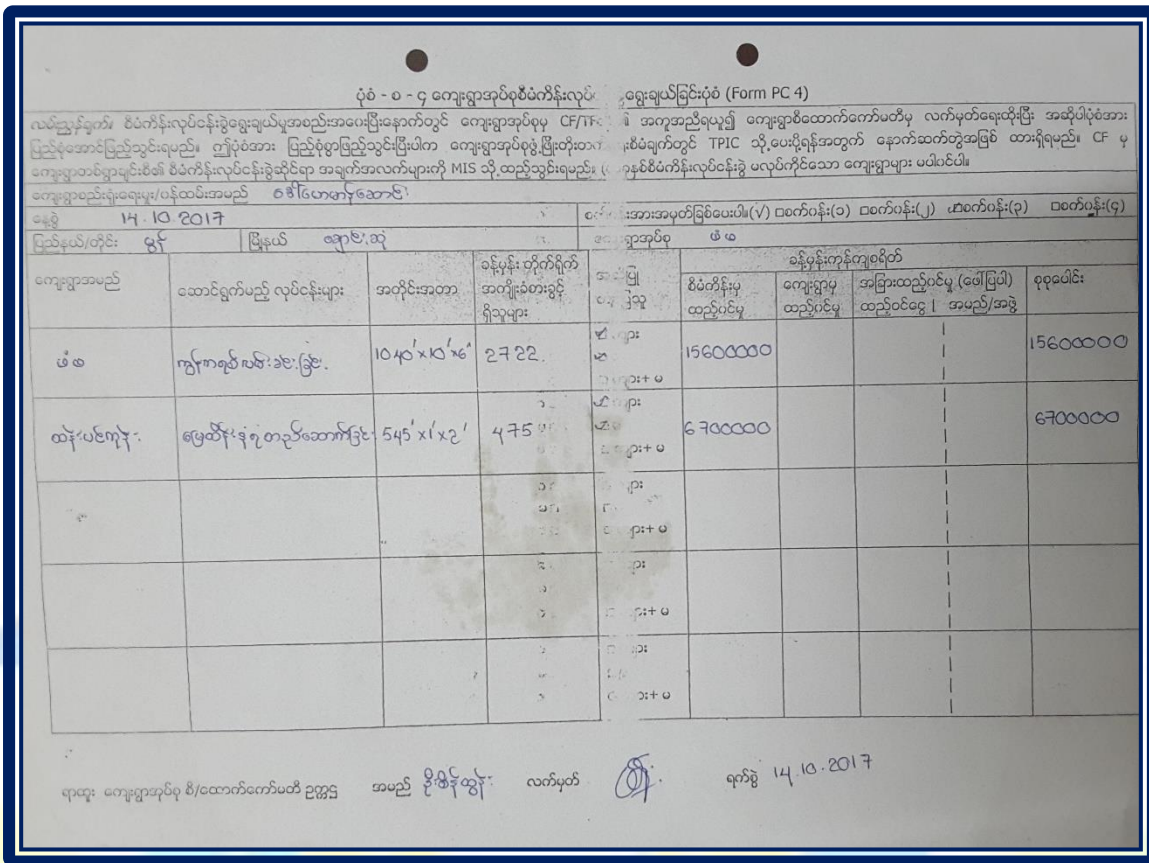 ပုံစံ - စ - ၄ ကျေးရွာအုပ်စုစီမံကိန်းလုပ် ရွေးချယ်ခြင်းပုံစံ (Form PC 4)
လမ်းညွှန်ချက်။ စီမံကိန်းလုပ်ငန်းခွဲရွေးချယ်မှုအစည်းအဝေးပြီးနောက်တွင် ကျေးရွာအုပ်စုမှ CF/TF အကူအညီရယူ၍ ကျေးရွာစီထောက်ကော်မတီမှ လက်မှတ်ရေးထိုးပြီး အဆိုပါပုံစံအား
ပြည့်စုံအောင်ဖြည့်သွင်းရမည်။ ဤပုံစံအား ပြည့်စုံစွာဖြည့်သွင်းပြီးပါက ကျေးရွာအုပ်စုဖွံ့ဖြိုးတိုးတက် စီမံချက်တွင် TPIC သို့ပေးပို့ရန်အတွက် နောက်ဆက်တွဲအဖြစ် ထားရှိရမည်။ CF မှ
ကျေးရွာတစ်ရွာချင်းစီ၏ စီမံကိန်းလုပ်ငန်းခွဲဆိုင်ရာ အချက်အလက်များကို MIS သို့ထည့်သွင်းရမည်။ စီမံကိန်းလုပ်ငန်းခွဲ မလုပ်ကိုင်သော ကျေးရွာများ မပါဝင်ပါ။
ကျေးရွာစည်းရုံးရေးမှူး/ဝန်ထမ်းအမည်
နေ့စွဲ 14.10.2017 အားအမှတ်ခြစ်ပေးပါ။(√) □စက်ဝန်း(၁) □စက်ဝန်း(၂) စက်ဝန်း(၃) □စက်ဝန်း(၄)
ပြည်နယ်/တိုင်း မွန် မြို့နယ် ချောင်းဆုံ ရွာအုပ်စု ဖံဖ
ကျေးရွာအမည် ဆောင်ရွက်မည့် လုပ်ငန်းများ အတိုင်းအတာ ခန့်မှန်း တိုက်ရိုက် အကျိုးခံစားခွင့် ရှိသူများ ခန့်မှန်းကုန်ကျစရိတ်
စီမံကိန်းမှ ထည့်ဝင်မှု ကျေးရွာမှ ထည့်ဝင်မှု အခြားထည့်ဝင်မှု (ဖော်ပြပါ) ထည့်ဝင်ငွေ | အမည်/အဖွဲ့ စုစုပေါင်း
ဖံဖ ကွန်ကရစ်လမ်းခင်းခြင်း 1040'x10'x6" 2722 15600000 15600000
ထန်းပင်ကုန်း မြေထိန်းနံရံတည်ဆောက်ခြင်း 545'x1'x2' 475 6700000 6700000
ရာထူး ကျေးရွာအုပ်စု စီ/ထောက်ကော်မတီ ဥက္ကဋ္ဌ အမည် လက်မှတ် ရက်စွဲ 14.10.2017